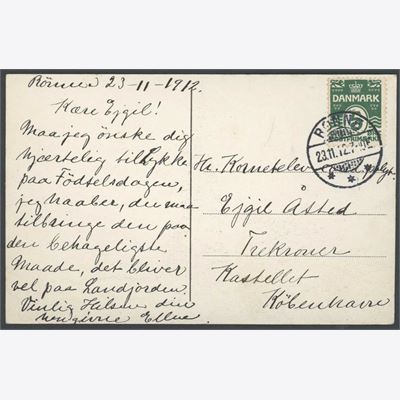 Rönne 23-11-1912.
Kære Ejgil!
Maa jeg ønske dig
hjærtelig tillykke
paa Fødselsdagen,
jeg haaber, du maa
tilbringe den paa
den behageligste
Maade, det bliver
vel paa Landjorden.
Venlig Hilsen din
hengivne Ellen.
DANMARK
RØNNE
23.11.12.
Hr. Kornetelev
Ejgil Åsted
Trekroner
Kastellet
København